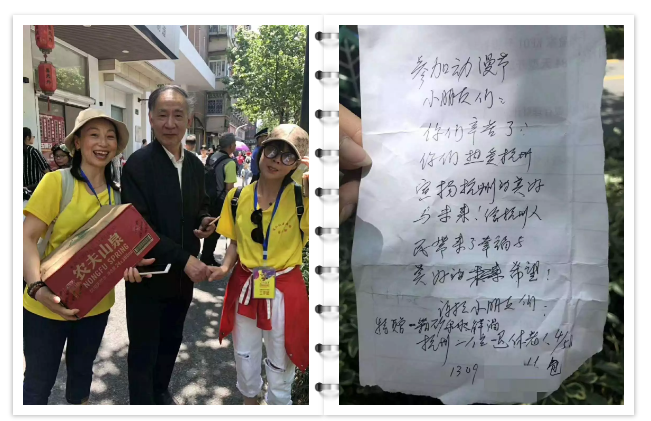 农夫山泉
NONGFU SPRING
参加动漫节
小朋友们:
你们辛苦了!
你们热爱杭州
宣扬杭州的美好
与未来!给杭州人
民带来了幸福与
美好的希望!
谢谢小朋友们!
特赠一箱矿泉水解渴
杭州一位退休老人
1309